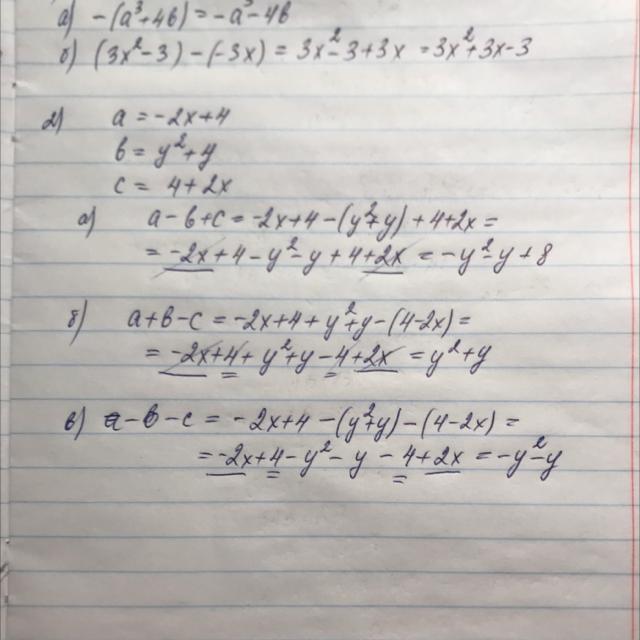 а) -(a³+4b) = -a³-4b
б) (3x²-3)-(-3x) = 3x²-3+3x = 3x²+3x-3
2) a = -2x+4
b = y²+y
c = 4+2x
а) a-b+c = -2x+4-(y²+y)+4+2x =
= -2x+4-y²-y+4+2x = -y²-y+8
б) a+b-c = -2x+4+y²+y-(4-2x) =
= -2x+4+y²+y-4+2x = y²+y
в) a-b-c = -2x+4-(y²+y)-(4-2x) =
= -2x+4-y²-y-4+2x = -y²-y